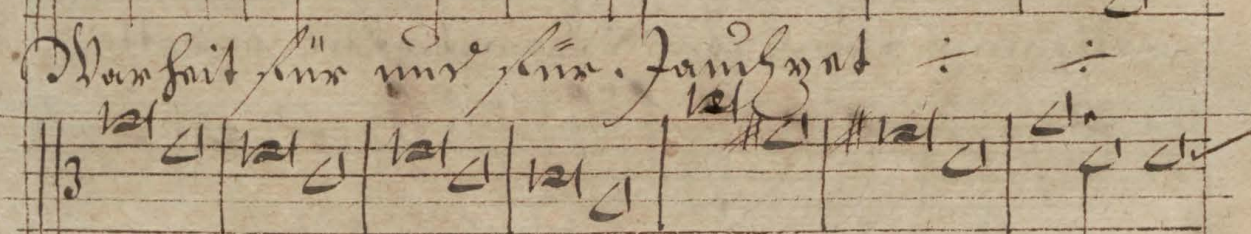 Warheit für und für. Jauchzet ÷ ÷
3